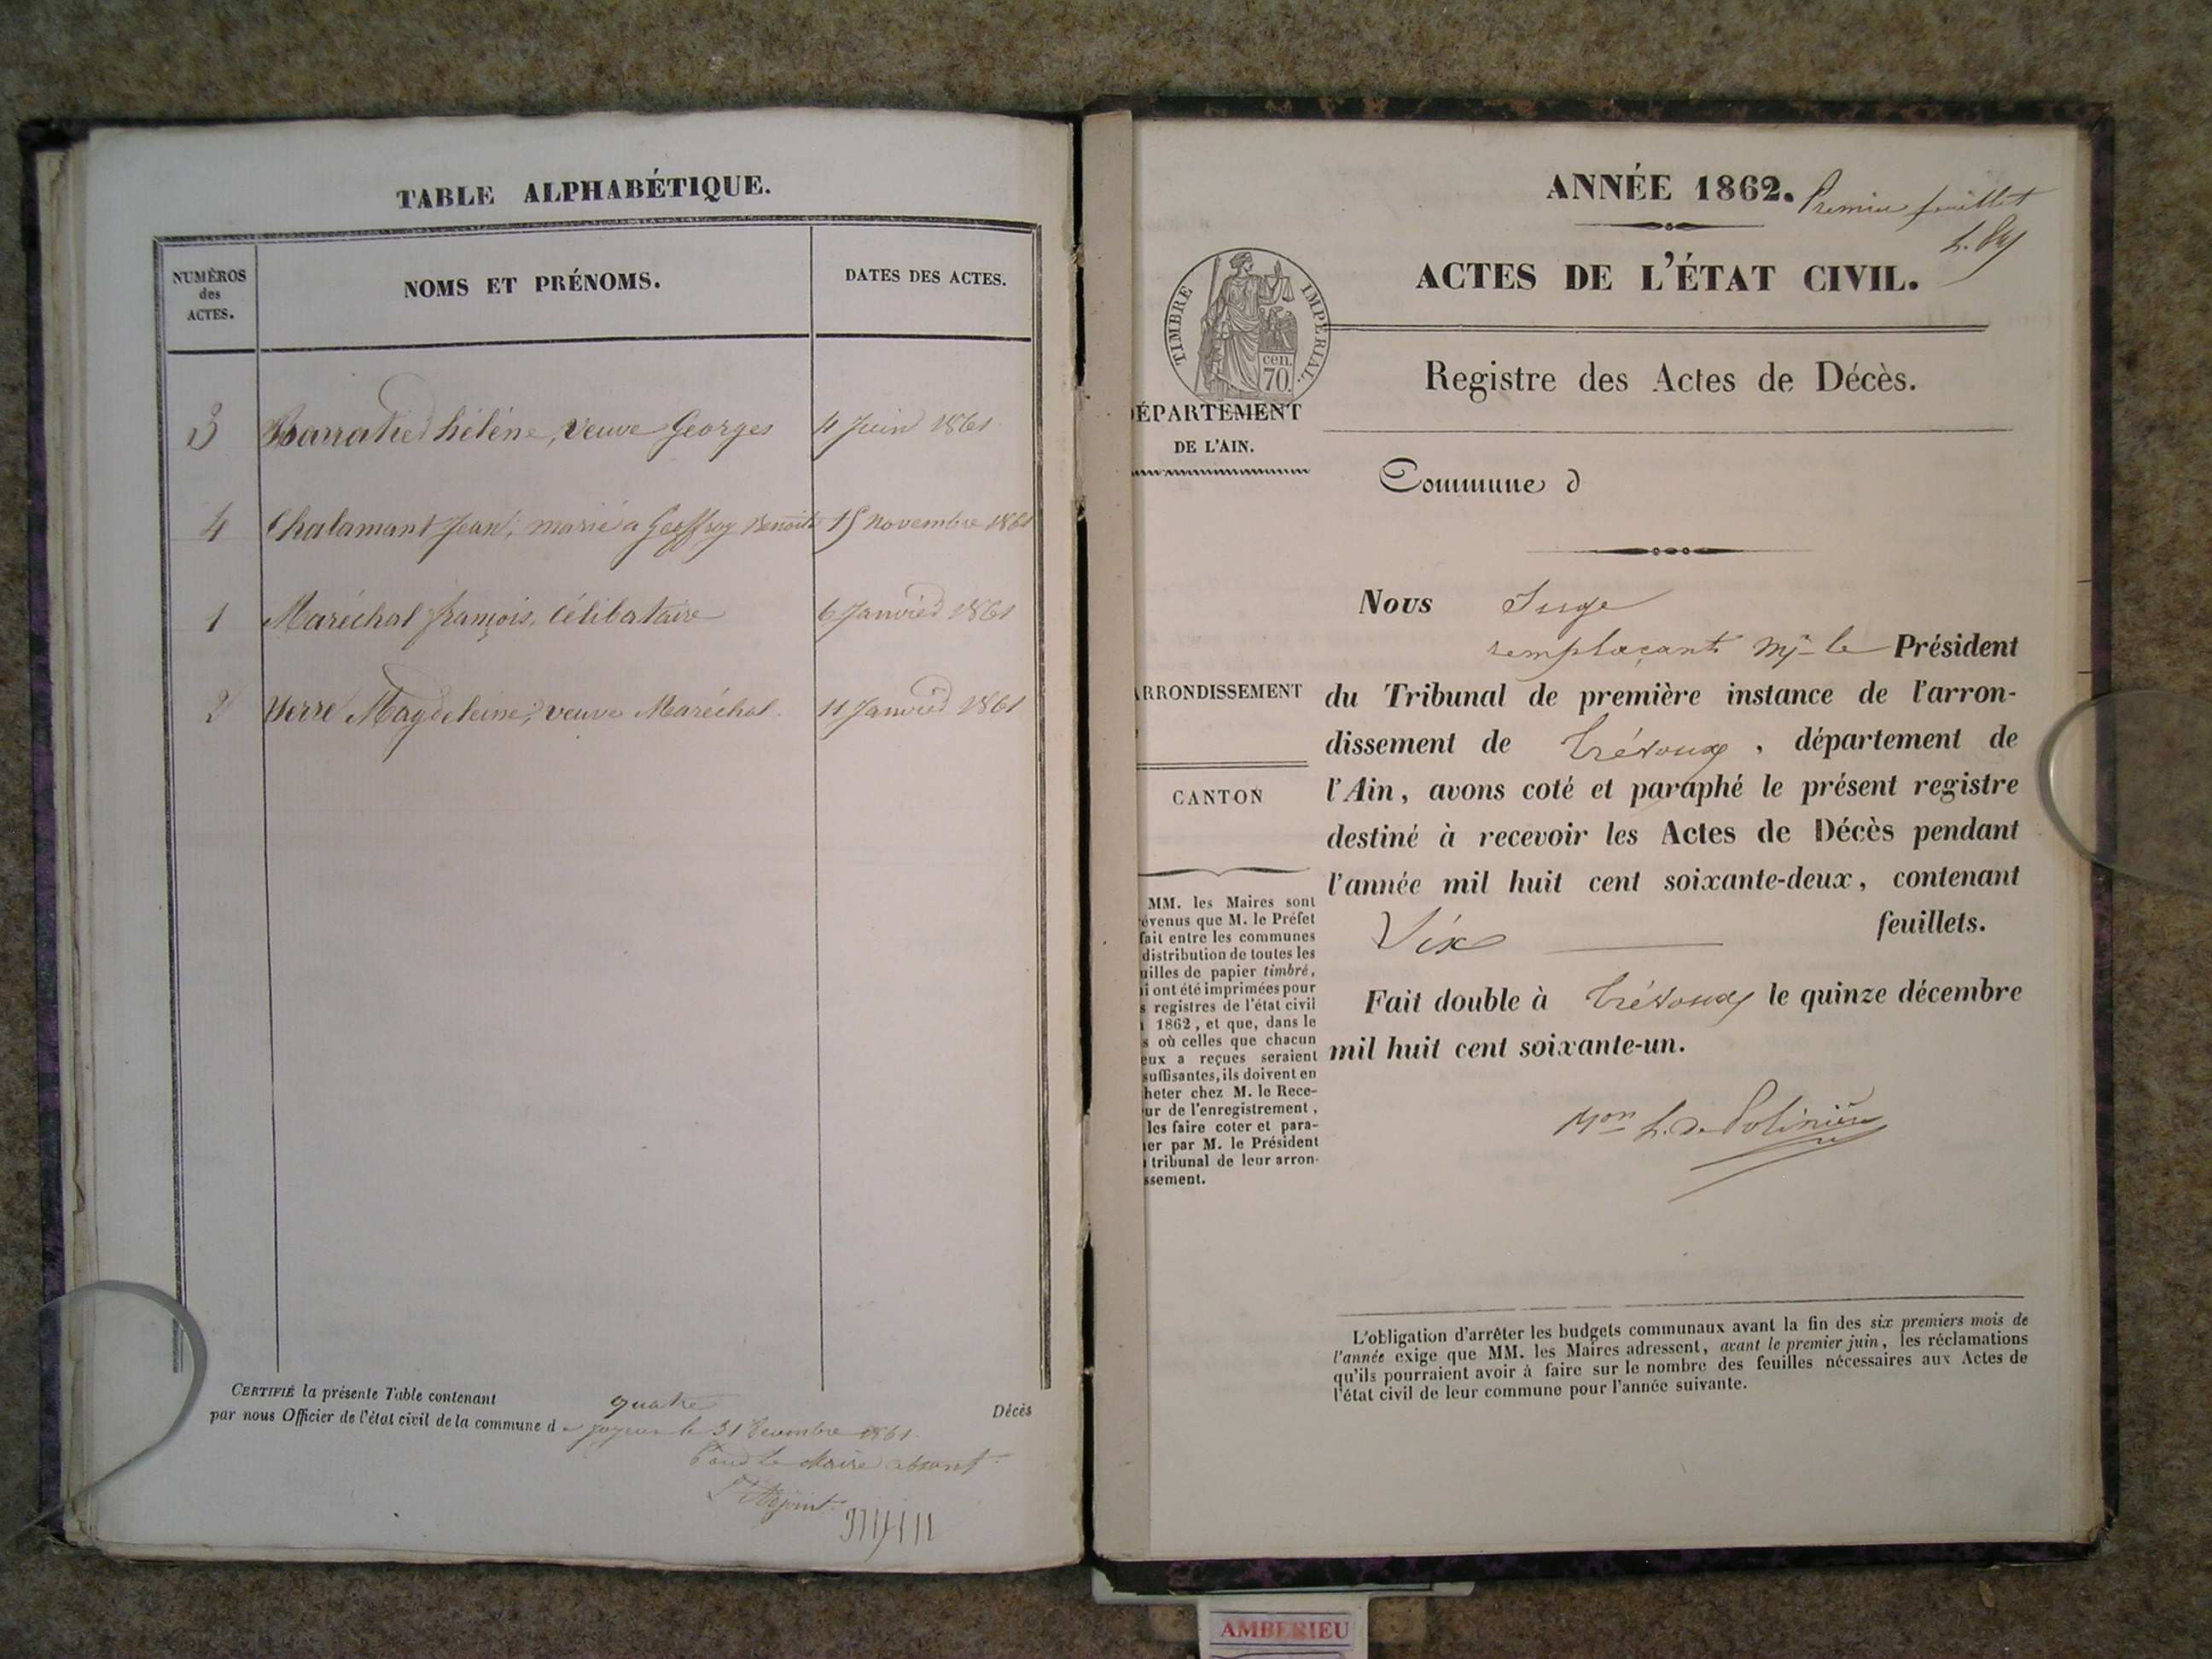 TABLE ALPHABÉTIQUE.
NUMÉROS
des
ACTES.
NOMS ET PRÉNOMS.
DATES DES ACTES.
3 hélène, veuve Georges 4 Juin 1861
4 Chalamant Jean, marié a Geoffroy Benoite 15 novembre 1861
1 Maréchal françois, Célibataire 6 Janvier 1861
2 Verre Magdeleine, veuve Maréchal 11 Janvier 1861
CERTIFIÉ la présente Table contenant quatre Décès
par nous Officier de l'état civil de la commune de Joyeux le 31 Décembre 1861.
Pour le Maire absent
L'Adjoint
ANNÉE 1862.
Premier feuillet
ACTES DE L'ÉTAT CIVIL.
TIMBRE IMPÉRIAL.
cen.
70.
Registre des Actes de Décès.
ÉPARTEMENT
DE L'AIN.
Commune d
Nous Juge
remplaçant Mr le Président
RRONDISSEMENT
du Tribunal de première instance de l'arron-
dissement de Trévoux, département de
CANTON
l'Ain, avons coté et paraphé le présent registre
destiné à recevoir les Actes de Décès pendant
l'année mil huit cent soixante-deux, contenant
Six feuillets.
Fait double à Trévoux le quinze décembre
mil huit cent soixante-un.
MM. les Maires sont
évenus que M. le Préfet
fait entre les communes
distribution de toutes les
uilles de papier timbré,
i ont été imprimées pour
s registres de l'état civil
1862, et que, dans le
s où celles que chacun
eux a reçues seraient
suffisantes, ils doivent en
heter chez M. le Rece-
ur de l'enregistrement,
les faire coter et para-
er par M. le Président
tribunal de leur arron-
ssement.
Mon L. de Polinière
L'obligation d'arrêter les budgets communaux avant la fin des six premiers mois de
l'année exige que MM. les Maires adressent, avant le premier juin, les réclamations
qu'ils pourraient avoir à faire sur le nombre des feuilles nécessaires aux Actes de
l'état civil de leur commune pour l'année suivante.
AMBERIEU